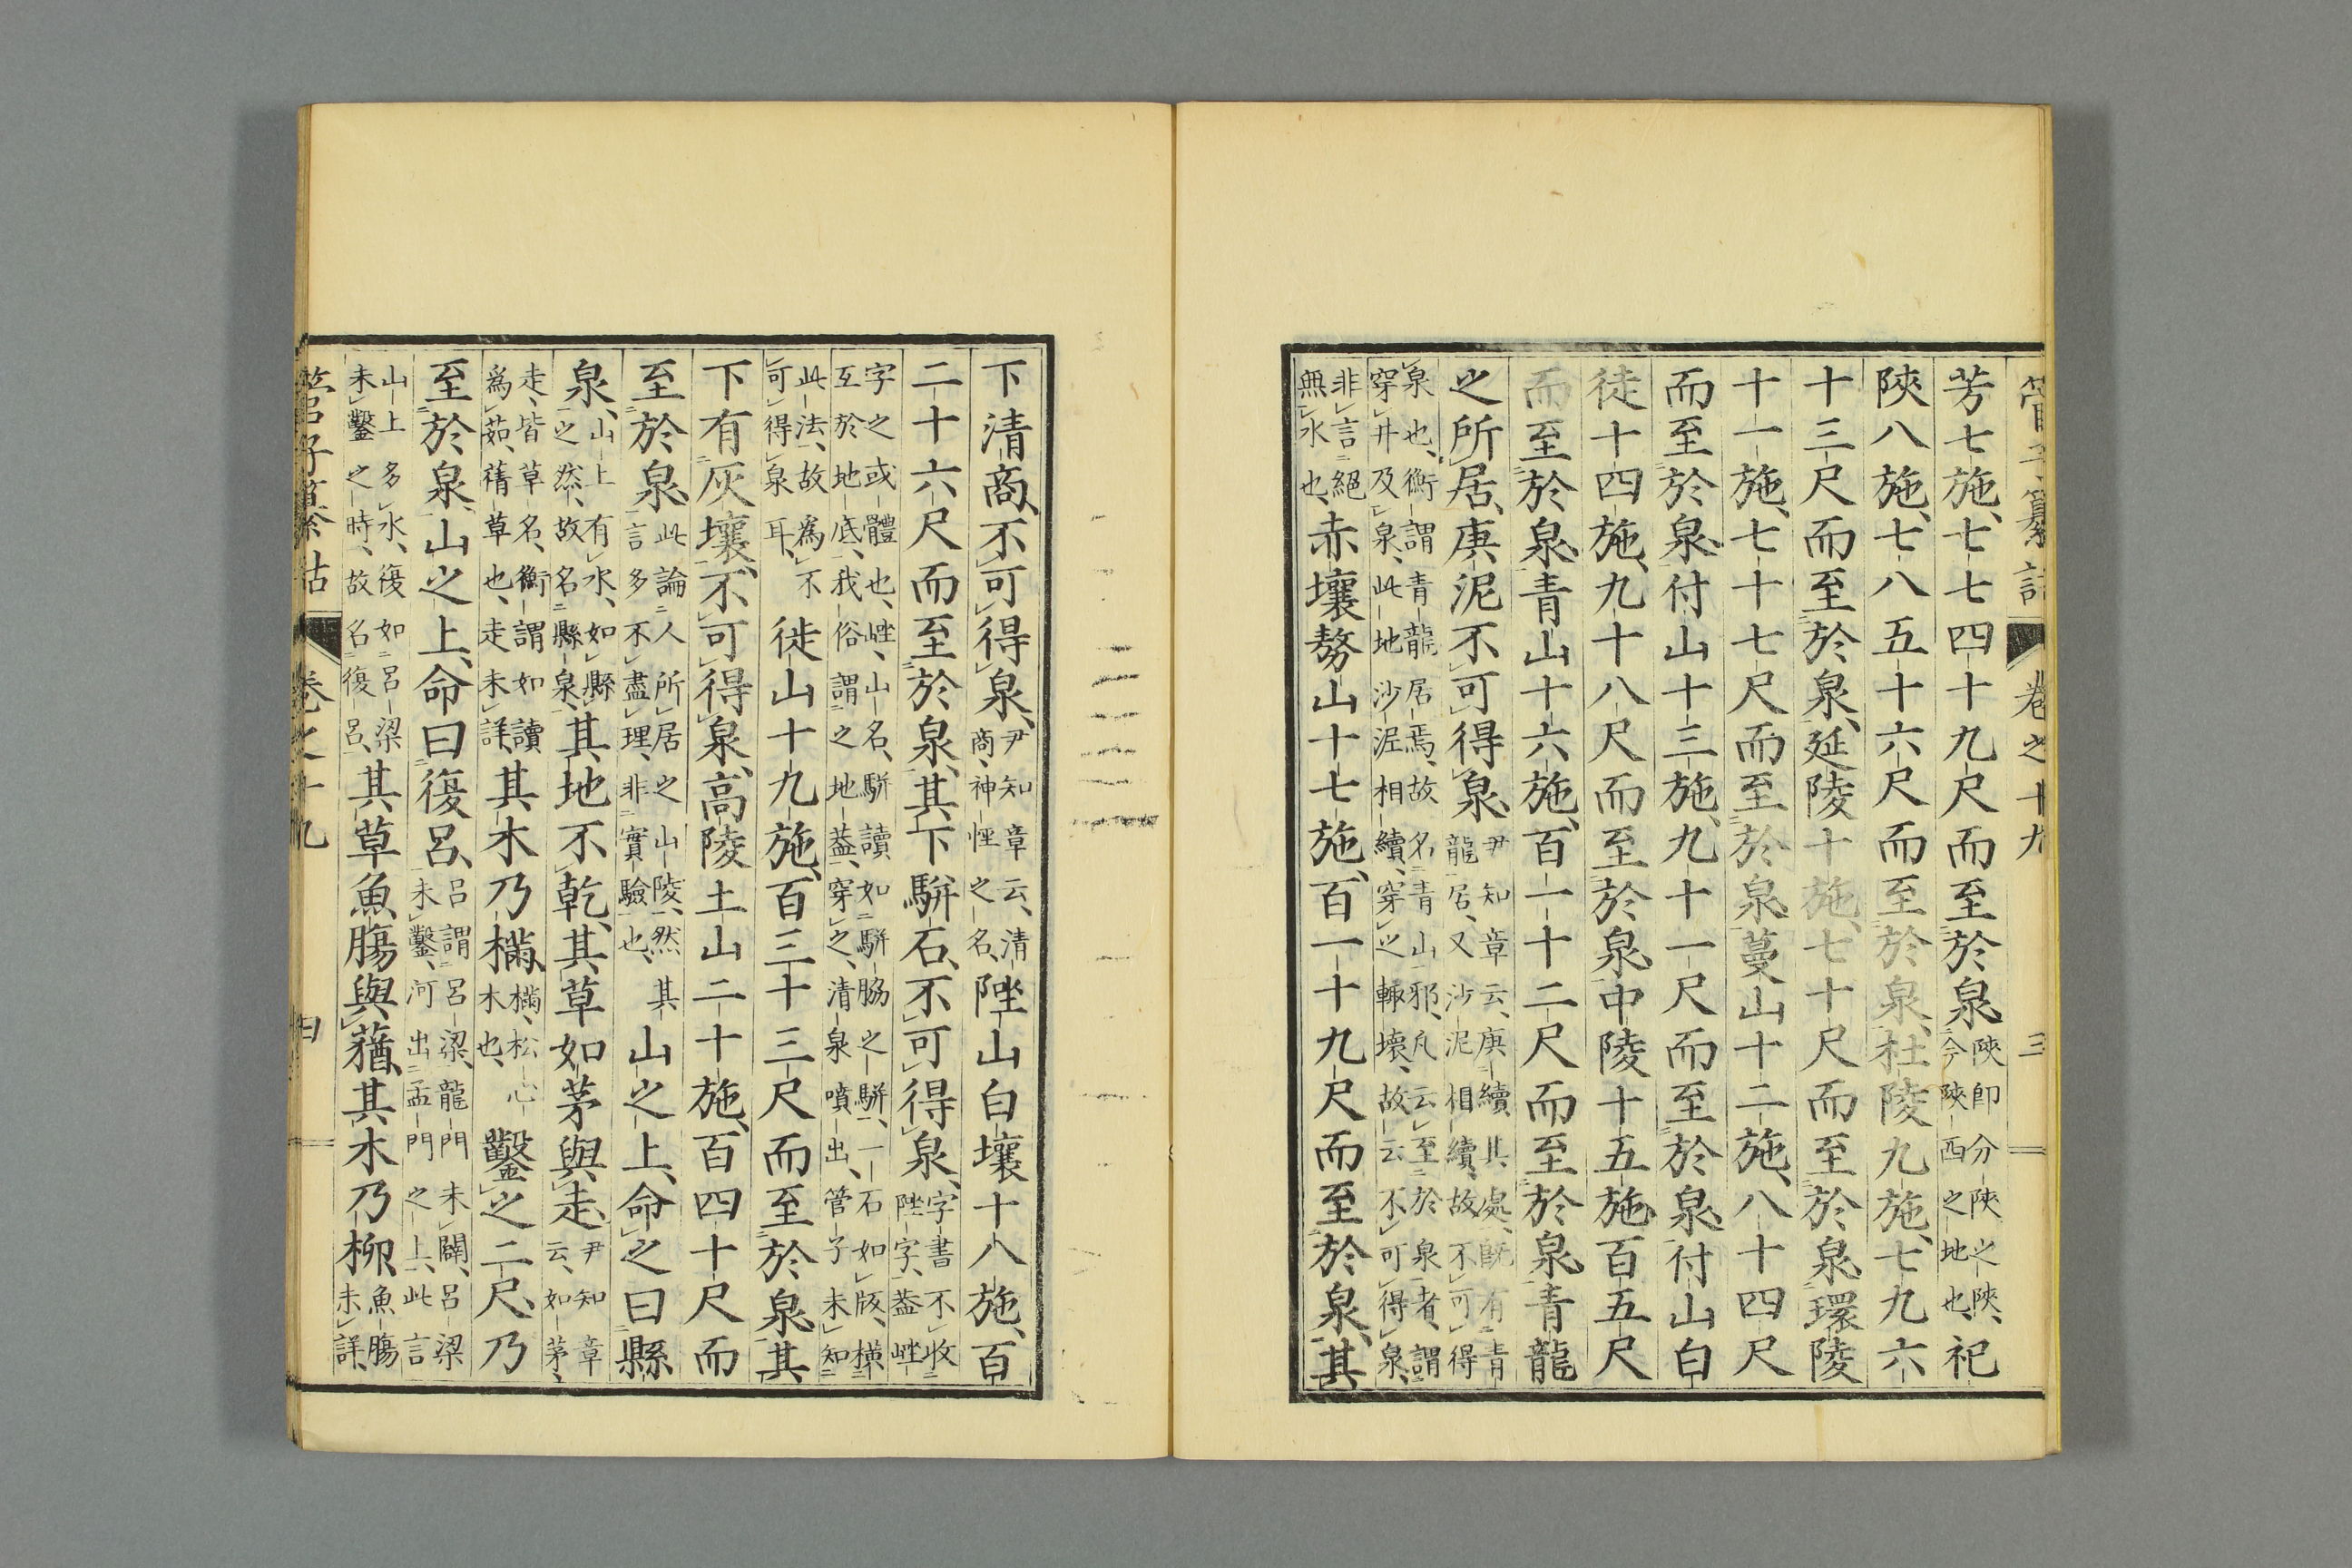 管子纂詁　卷之十九　三
芳七施、七七四十九尺而至於泉、陝卽分陝之陝、今陝西之地也、祀
陝八施、七八五十六尺而至於泉、杜陵九施、七九六
十三尺而至於泉、延陵十施、七十尺而至於泉、環陵
十一施、七十七尺而至於泉、蔓山十二施、八十四尺
而至於泉、付山十三施、九十一尺而至於泉、付山白
徒十四施、九十八尺而至於泉、中陵十五施、百五尺
而至於泉、青山十六施、百一十二尺而至於泉、青龍
之所居、庚泥不可得泉、尹知章云、庚續、其處、既有青龍居、又沙泥相續、故不可得
泉也、衡謂青龍居焉、故名青山邪、凡云至於泉者、謂穿井及泉、此地沙泥相續、穿之輙壞、故云不可得泉、
非言絕無水也、赤壤勢山十七施、百一十九尺而至於泉、其
下清商、不可得泉、尹知章云、清商、神怪之名、陛山白壤十八施、百
二十六尺而至於泉、其下駢石、不可得泉、字書不收陛字、蓋㟅
字之或體也、㟅、山名、駢讀如駢脇之駢、一石如版、橫互於地底、我俗謂之地蓋、穿之、清泉噴出、管子未知
此法、故爲不可得泉耳、徙山十九施、百三十三尺而至於泉、其
下有灰壤、不可得泉、高陵土山二十施、百四十尺而
至於泉、此論人所居之山陵、然其言多不盡理、非實驗也、山之上、命之曰縣
泉、山上有水、如縣之然、故名縣泉、其地不乾、其草如茅與走、尹知章云、如茅、
走、皆草名、衡謂如讀爲茹、蒨草也、走未詳、其木乃樠、樠、松心木也、鑿之二尺、乃
至於泉、山之上、命曰復呂、呂謂呂梁、龍門未闢、呂梁未鑿、河出孟門之上、此言
山上多水、復如呂梁未鑿之時、故名復呂、其草魚膓與蕕、其木乃柳、魚膓未詳、
管子纂詁　卷之十九　四